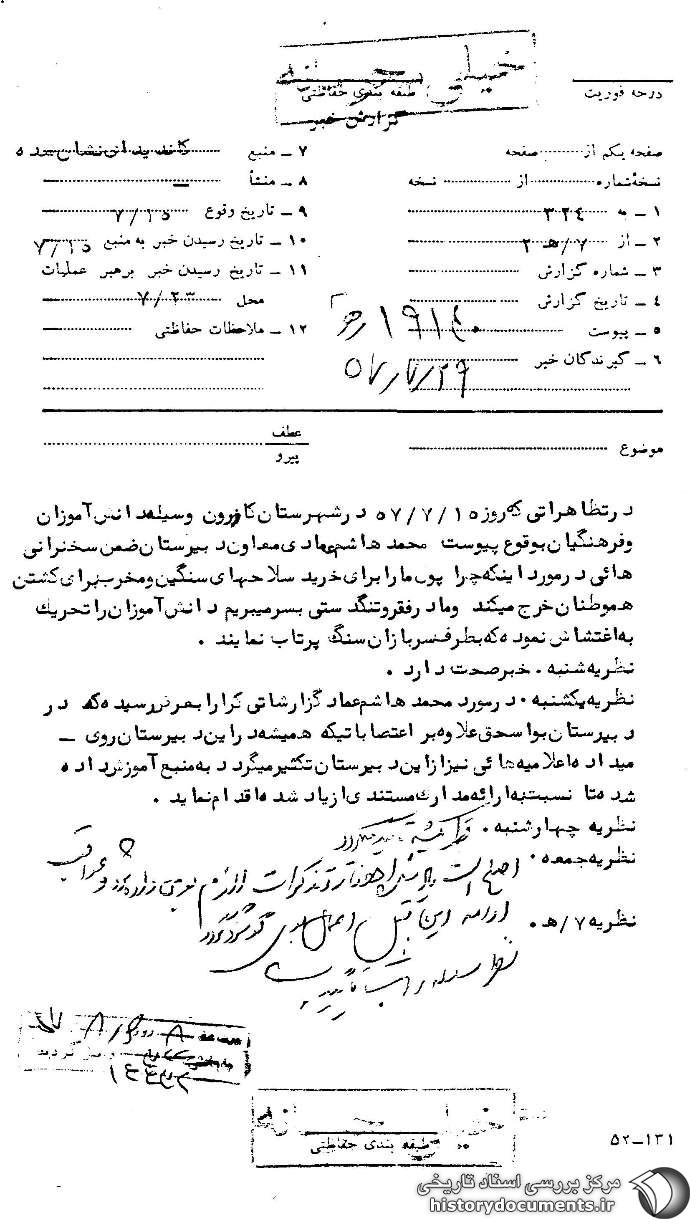 خیلی محرمانه
طبقه بندی حفاظتی
گزارش خبر
درجه فوریت
صفحه یکم از صفحه
نسخه شماره از نسخه
۱ ـ به ۳۲۴
۲ ـ از ۷/هـ ۲
۳ ـ شماره گزارش
۴ ـ تاریخ گزارش
۵ ـ پیوست
۶ ـ گیرندگان خبر
۷ ـ منبع کاندیدای نشان شده
۸ ـ منشأ ـ
۹ ـ تاریخ وقوع ۷/۱۵
۱۰ ـ تاریخ رسیدن خبر به منبع ۷/۱۵
۱۱ ـ تاریخ رسیدن خبر برهبر عملیات
محل ۷/۲۳
۱۲ ـ ملاحظات حفاظتی
۱۹۱۴۰
۵۷/۷/۲۹
موضوع
عطف
پیرو
درتظاهراتی که روز ۵۷/۷/۱۵ درشهرستان کازرون وسیله دانش آموزان
وفرهنگیان بوقوع پیوست محمد هاشم عمادی معاون دبیرستان ضمن سخنرانی
هائی درمورد اینکه چرا پول ما را برای خرید سلاحهای سنگین و مخرب برای کشتن
هموطنان خرج میکند وما در فقر و تنگدستی بسر میبریم دانش آموزان را تحریک
به اغتشاش نموده که بطرف سربازان سنگ پرتاب نمایند .
نظریه شنبه . خبر صحت دارد .
نظریه یکشنبه . درمورد محمد هاشم عماد گزارشاتی کرارا بعرض رسیده که در
دبیرستان بواسحق علاوه بر اعتصاباتیکه همیشه در این دبیرستان روی ـ
میداده اعلامیه هائی نیز از این دبیرستان تکثیر میگردد به منبع آموزش داده
شده تا نسبت به ارائه مدارک مستندی ازیاد شده اقدام نماید .
نظریه چهارشنبه . نظریه یکشنبه تایید میگردد
نظریه جمعه . اصلح است احضار و تذکرات لازم
ادامه این قبیل اعمال گوشزد گردد
نظریه ۷/هـ . نظریه
طبقه بندی حفاظتی
۵۲ـ۱۳۱
مرکز بررسی اسناد تاریخی
historydocuments.ir